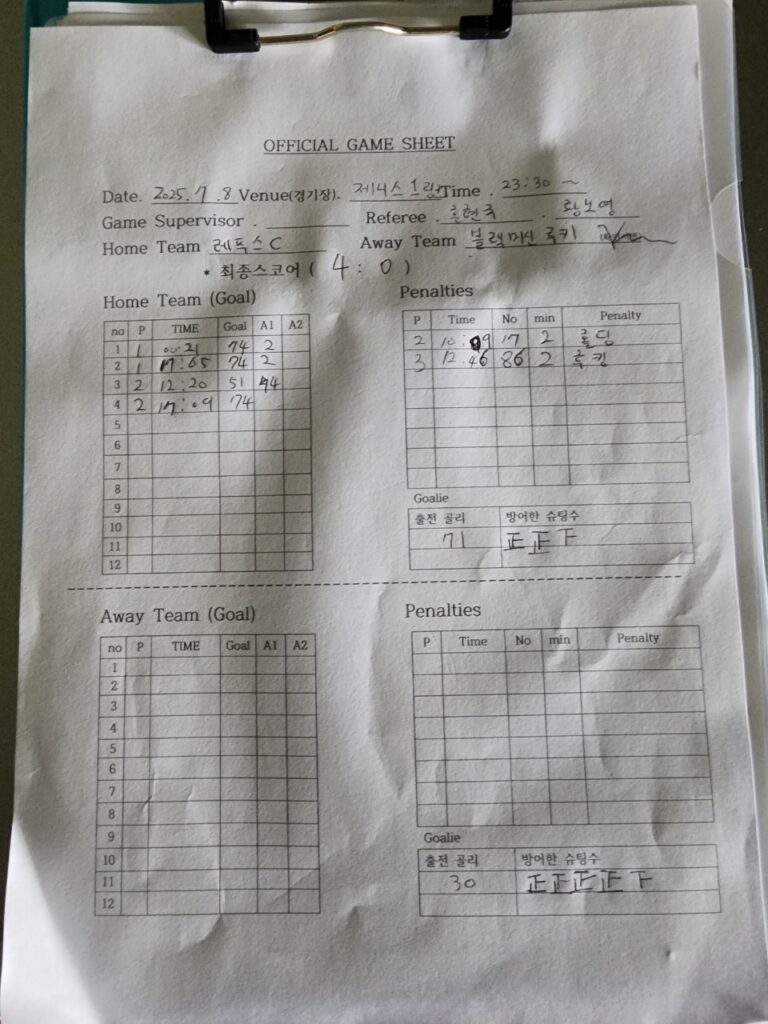 OFFICIAL GAME SHEET
Date. 2025.7.8 Venue(경기장). 제니스 Time . 23:30 ~
Game Supervisor . Referee .
Home Team 레독스C Away Team 블랙머신 루키
* 최종스코어 ( 4 : 0 )
Home Team (Goal) Penalties
no P TIME Goal A1 A2 P Time No min Penalty
1 1 00:21 74 2 2 10:09 17 2 홀딩
2 1 17:05 74 2 3 12:46 86 2 후킹
3 2 12:20 51 74
4 2 17:09 74
5
6
7
8
9
10
11
12
Goalie
출전 골리 방어한 슈팅수
71 正 正 下
Away Team (Goal) Penalties
no P TIME Goal A1 A2 P Time No min Penalty
1
2
3
4
5
6
7
8
9
10
11
12
Goalie
출전 골리 방어한 슈팅수
30 正 正 正 正 下